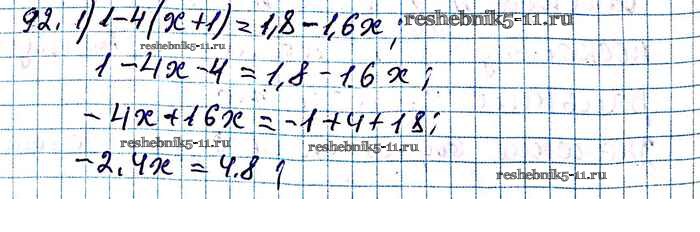 92. 1) 1-4(x+1)=1,8-1,6x;
reshebnik5-11.ru
reshebnik5-11.ru
1-4x-4=1,8-16x;
-4x+16x=-1+4+18;
reshebnik5-11.ru
reshebnik5-11.ru
-2.4x=4.8;
reshebnik5-11.ru